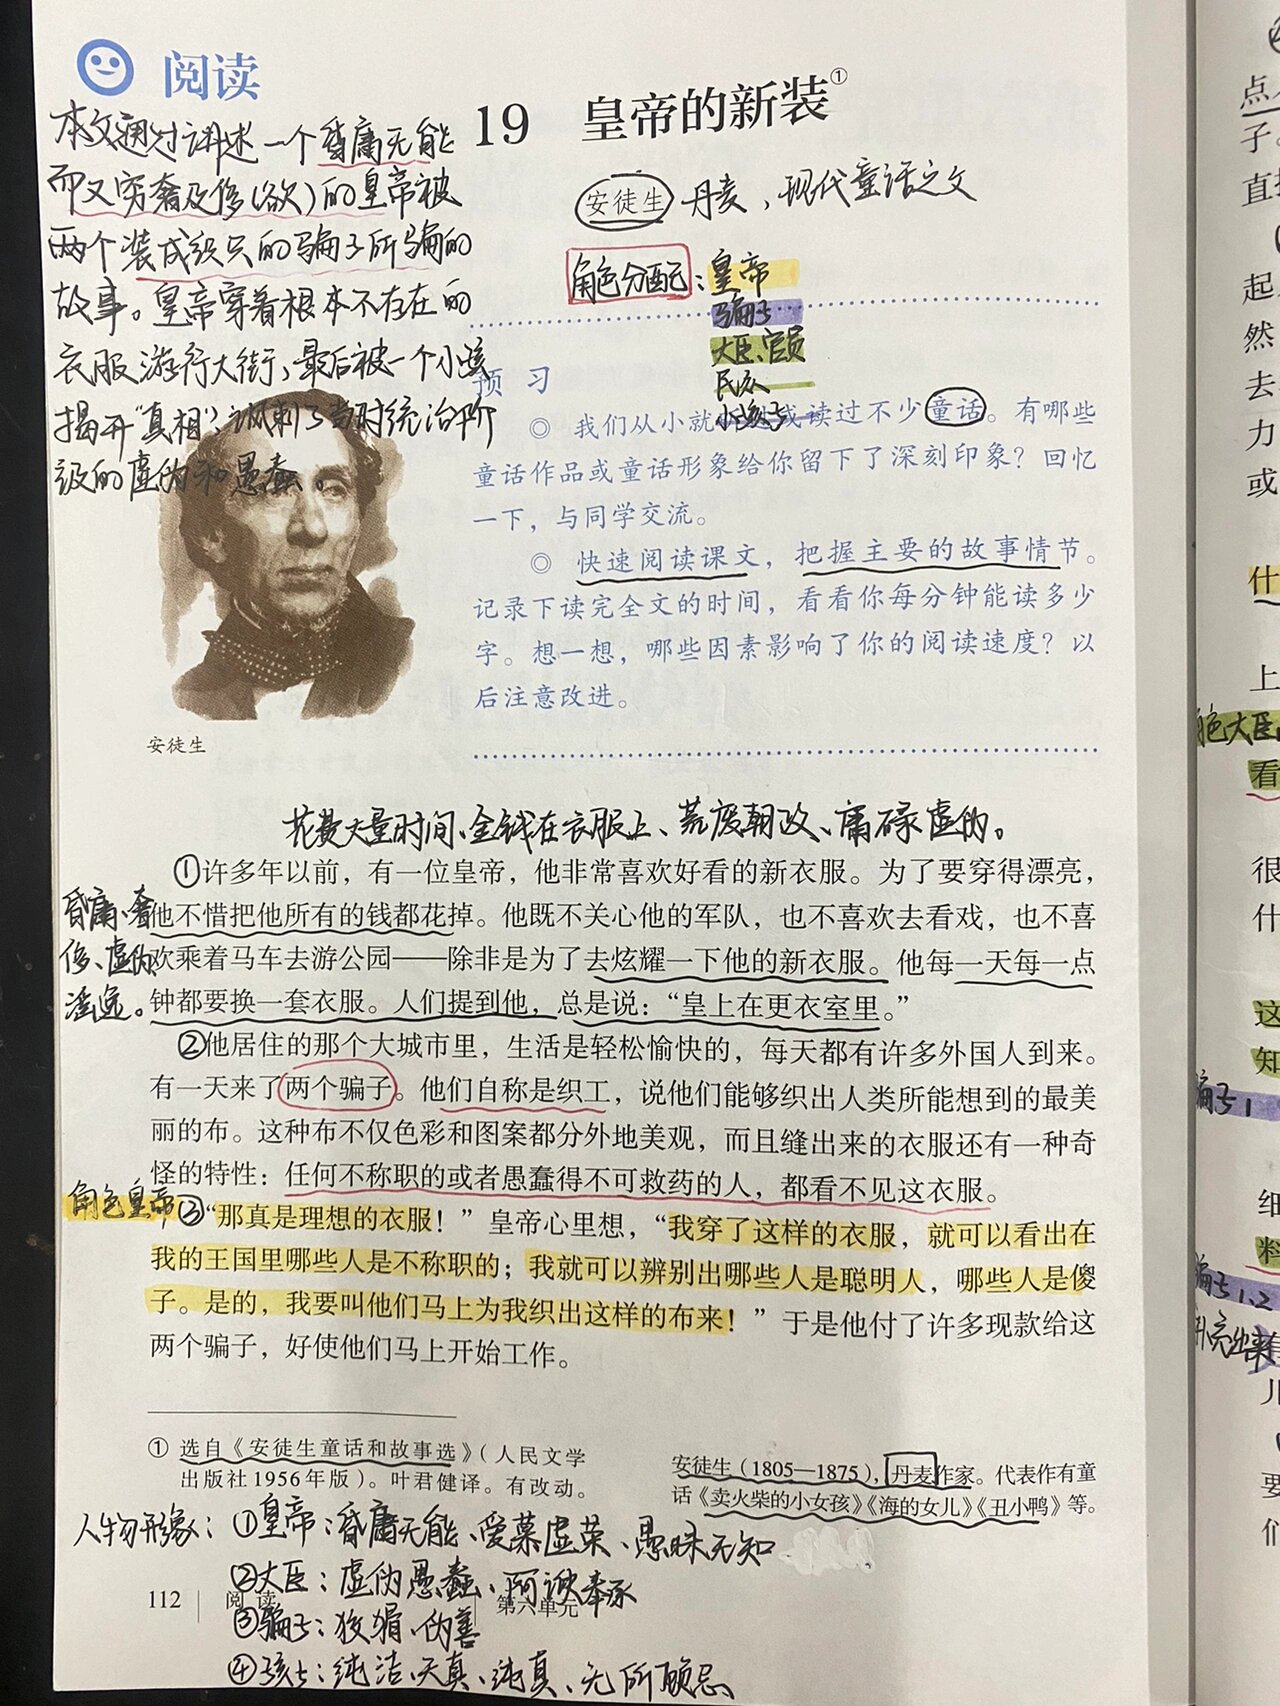 阅读
19 皇帝的新装①
本文通过讲述一个昏庸无能
而又穷奢及侈(欲)的皇帝被
两个装成织工的骗子所骗的
故事。皇帝穿着根本不存在的
衣服游行大街,最后被一个小孩
揭开“真相”,讽刺了当时统治阶
级的虚伪和愚蠢。
安徒生 丹麦,现代童话之父
角色分配:皇帝
骗子
大臣、官员
民众
小孩子
预习
◎ 我们从小就 或读过不少童话。有哪些
童话作品或童话形象给你留下了深刻印象?回忆
一下,与同学交流。
◎ 快速阅读课文,把握主要的故事情节。
记录下读完全文的时间,看看你每分钟能读多少
字。想一想,哪些因素影响了你的阅读速度?以
后注意改进。
安徒生
花费大量时间、金钱在衣服上、荒废朝政、庸碌虚伪。
①许多年以前,有一位皇帝,他非常喜欢好看的新衣服。为了要穿得漂亮,
他不惜把他所有的钱都花掉。他既不关心他的军队,也不喜欢去看戏,也不喜
欢乘着马车去游公园——除非是为了去炫耀一下他的新衣服。他每一天每一点
钟都要换一套衣服。人们提到他,总是说:“皇上在更衣室里。”
昏庸、奢
侈、虚伪
淫逸。
②他居住的那个大城市里,生活是轻松愉快的,每天都有许多外国人到来。
有一天来了两个骗子。他们自称是织工,说他们能够织出人类所能想到的最美
丽的布。这种布不仅色彩和图案都分外地美观,而且缝出来的衣服还有一种奇
怪的特性:任何不称职的或者愚蠢得不可救药的人,都看不见这衣服。
角色皇帝
③“那真是理想的衣服!”皇帝心里想,“我穿了这样的衣服,就可以看出在
我的王国里哪些人是不称职的;我就可以辨别出哪些人是聪明人,哪些人是傻
子。是的,我要叫他们马上为我织出这样的布来!”于是他付了许多现款给这
两个骗子,好使他们马上开始工作。
① 选自《安徒生童话和故事选》(人民文学
出版社1956年版)。叶君健译。有改动。
安徒生(1805—1875),丹麦作家。代表作有童
话《卖火柴的小女孩》《海的女儿》《丑小鸭》等。
人物形象:①皇帝:昏庸无能、爱慕虚荣、愚昧无知
②大臣:虚伪愚蠢、阿谀奉承
③骗子:狡猾、伪善
④孩子:纯洁、天真、纯真、无所顾忌
112 阅读 第六单元
点
子。
直
起
然
去
力
或
什
上
角色大臣
看
很
什
这
知
骗子1
细
料
骗子1、2
要
们